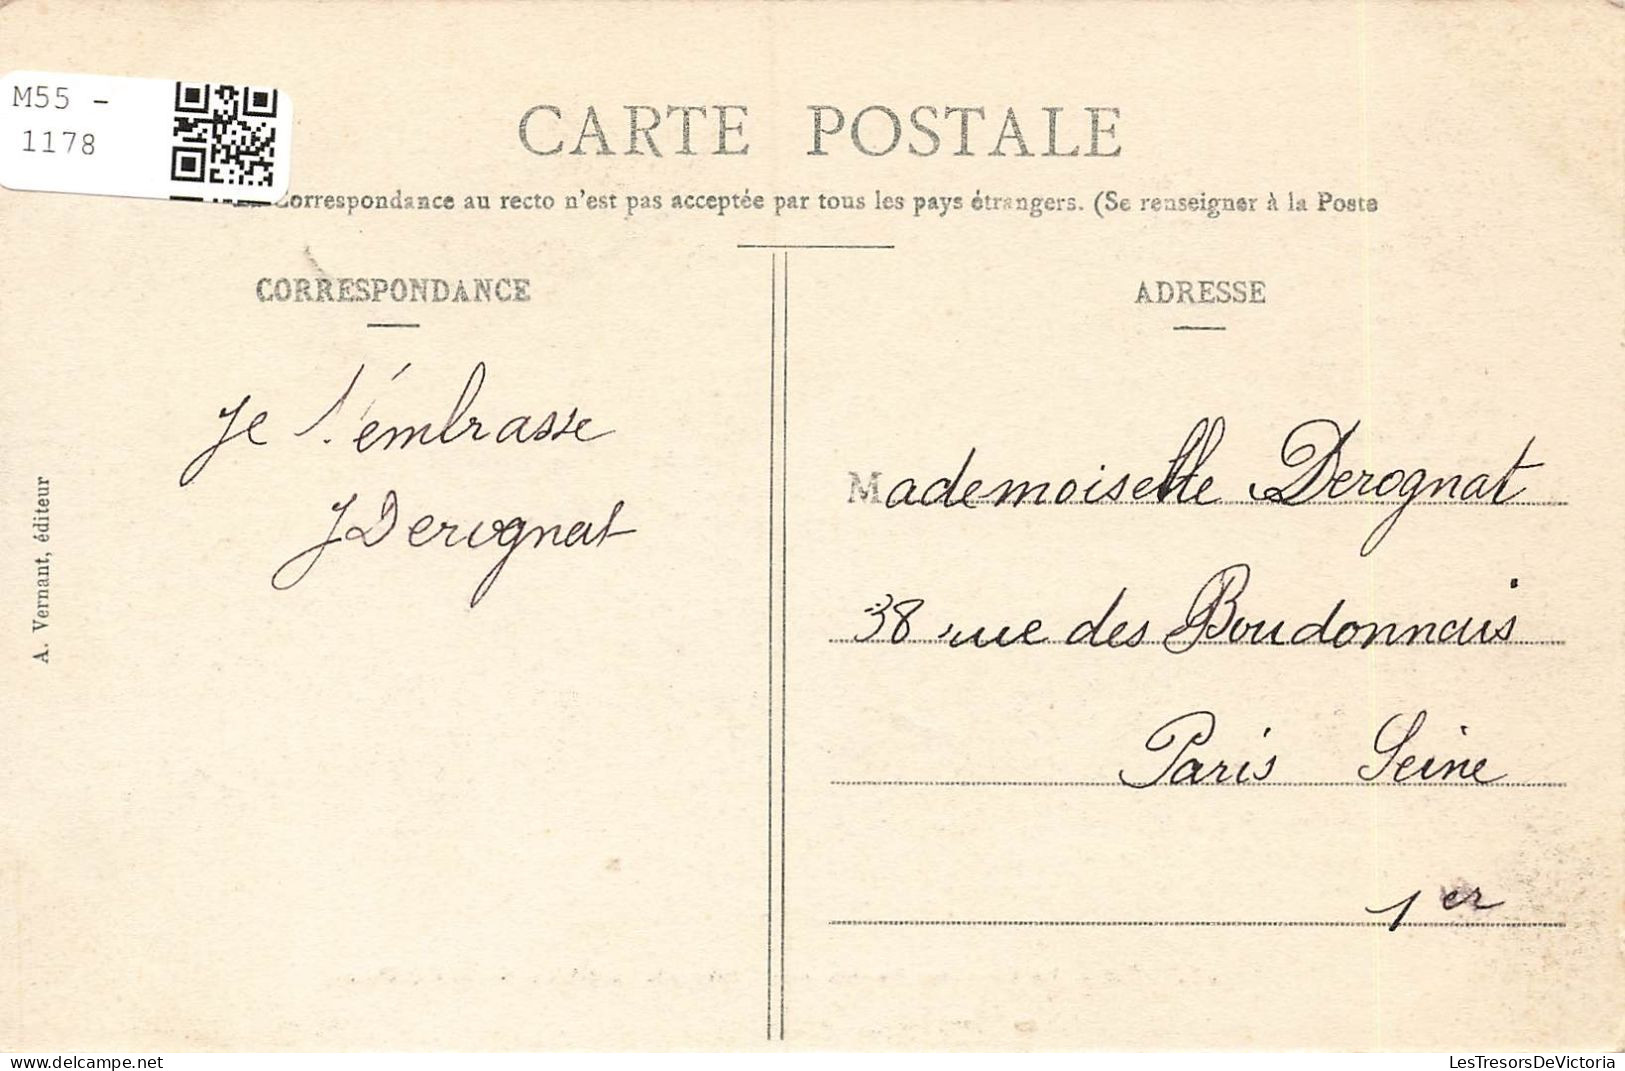 M55 -
1178
CARTE POSTALE
La Correspondance au recto n'est pas acceptée par tous les pays étrangers. (Se renseigner à la Poste
CORRESPONDANCE
Je t'embrasse
J Derognat
A. Vernant, éditeur
ADRESSE
Mademoiselle Derognat
38 rue des Bourdonnais
Paris Seine
1er
delcampe.net
tresorsdevictoria
LesTresorsDeVictoria